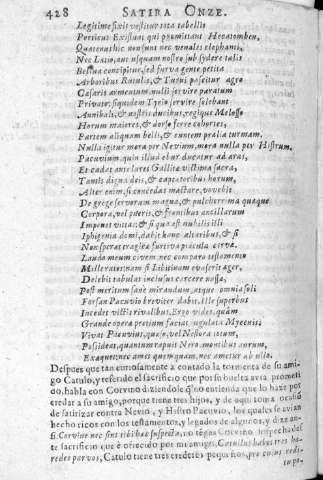 428 SATIRA ONZE.
Legitime fixis vestitur tota tabellis
Porticus. Existunt qui promittant Hecatomben,
Quatenus hic non sunt nec venales elephanti,
Nec Latio, aut usquam nostro sub sydere talis
Bellua concipitur, sed furva gente petita
Arboribus Rutulis, & Turni pascitur agro
Cæsaris armentum, nulli servire paratum
Privato: siquidem Tyrio servire solebant
Annibali, & nostris ducibus, regique Molosso
Horum maiores, & dorso ferre cohortes,
Partem aliquam belli, & euntem prælia turrim.
Nulla igitur mora per Nevium, mora nulla per Histrum
Pacuvium, quin illud ebur ducatur ad aras,
Et cadat ante lares Gallitæ victima sacra,
Tantis digna deis, & captatoribus horum,
Alter enim, si concedas mactare, vovebit
De grege servorum magna, & pulcherrima quæque
Corpora, vel pueris, & frontibus ancillarum
Imponet vittas: & si qua est nubilis illi
Iphigenia domi, dabit hanc altaribus, & si
Non speret tragicæ furtiva piacula cervæ.
Laudo meum civem, nec comparo testamento
Mille rates: nam si Libitinam evaserit æger,
Delebit tabulas inclusus carcere nassæ,
Post meritum sane mirandum, atque omnia soli
Forsan Pacuvio breviter dabit. Ille superbus
Incedet victis rivalibus. Ergo vides, quàm
Grande operæ pretium faciat iugulata Mycenis.
Vivat Pacuvius, quæso, vel Nestora totum,
Possideat, quantum rapuit Nero, montibus aurum,
Exæquet: nec amet quemquam, nec ametur ab ullo.
Despues que tan curiosamente a contado la tormenta de su ami-
go Catulo, y referido el sacrificio que por su buelta avia prometi-
do, habla con Corvino diziendole q̃ no entienda que lo haze por
eredar a su amigo, porque tiene tres hijos, y de aqui toma ocasiõ
de satirizar contra Nevio, y Histro Pacuvio, los quales se avian
hecho ricos con los testamentos, y legados de algunos, y dize an-
si. Corvino nec sint tibi hæc suspecta, no tẽgas Corvino sospecha des-
te sacrificio que è ofrecido por mi amigo. Catullus habet tres hæ-
redes parvos, Catulo tiene tres eredes pequeños,